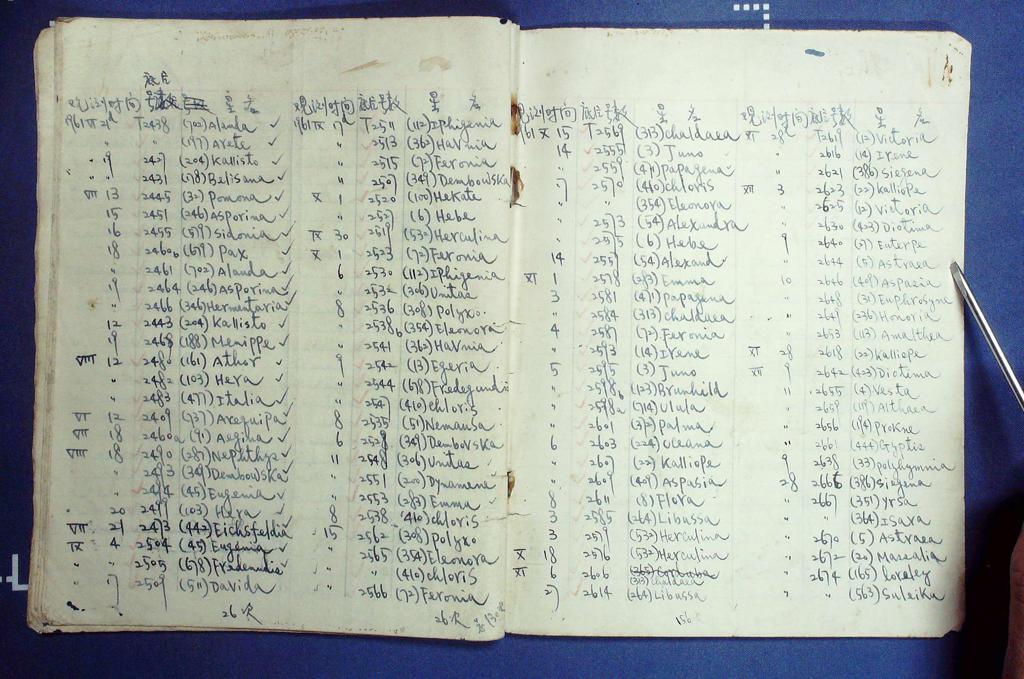 底片
观测时间 号数 星名
1961 VI 21d T2438 (702) Alauda ✓
" " (197) Arete ✓
" 9 2427 (204) Kallisto ✓
" " 2431 (178) Belisana ✓
VII 13 2445 (32) Pomona ✓
15 2451 (246) Asporina ✓
16 2455 (579) Sidonia ✓
18 2460b (679) Pax ✓
" 2461 (702) Alauda ✓
19 2464 (246) Asporina ✓
" 2466 (346) Hermentaria ✓
12 2443 (204) Kallisto ✓
19 2468 (188) Menippe ✓
VIII 12 2480 (161) Athor ✓
" 2482 (103) Hera ✓
" 2483 (477) Italia ✓
VI 12 2409 (737) Arequipa ✓
VII 18 2460a (91) Aegina ✓
VIII 18 2490 (287) Nephthys ✓
" 2493 (349) Dembowska ✓
" 2494 (45) Eugenia ✓
20 2499 (103) Hera ✓
VII 21 2473 (442) Eichsfeldia ✓
IX 4 2504 (45) Eugenia ✓
" " 2505 (678) Fredegundis ✓
" 7 2509 (511) Davida ✓
26次
观测时间 底片号数 星名
1961 IX 7d T2511 (112) Iphigenia
" 2513 (362) Havnia
" 2515 (72) Feronia
" 2507 (349) Dembowska
X 1 2520 (100) Hekate
" 2527 (6) Hebe
IX 30 2519 (532) Herculina
X 1 2523 (72) Feronia
6 2530 (112) Iphigenia
" 2532 (306) Unitas
8 2536 (308) Polyxo
" 2538b (354) Eleonora
" 2541 (362) Havnia
9 2542 (13) Egeria
" 2544 (678) Fredegundis
" 2547 (410) Chloris
8 2535 (51) Nemausa
6 2528 (349) Dembovska
11 2548 (306) Unitas
" 2551 (200) Dynamene
" 2553 (283) Emma
8 2538 (410) Chloris
15 2562 (308) Polyxo
" 2565 (354) Eleonora
" " (410) Chloris
" 2566 (72) Feronia
26次
观测时间 底片号数 星名
1961 X 15 T2569 (313) Chaldaea
14 2555 (3) Juno
" 2559 (471) Papagena
7 2570 (410) Chloris
" " (354) Eleonora
" 2573 (54) Alexandra
" 2575 (6) Hebe
14 2557 (54) Alexand
XI 1 2578 (283) Emma
3 2581 (471) Papagena
" 2584 (313) Chaldaea
4 2587 (72) Feronia
" 2593 (14) Irene
5 2595 (3) Juno
" 2598b (123) Brunhild
" 2598a (714) Ulula
" 2601 (372) Palma
6 2603 (224) Oceana
" 2607 (22) Kalliope
" 2609 (409) Aspasia
8 2611 (8) Flora
3 2585 (264) Libussa
3 2579 (532) Herculina
X 18 2576 (532) Herculina
XI 6 2606 (313) Chaldaea
27 2614 (264) Libussa
156
观测时间 底片号数 星名
XI 28d T2617 (12) Victoria
" 2616 (14) Irene
" 2621 (386) Siegena
XII 3 2623 (22) Kalliope
" 2625 (12) Victoria
" 2630 (423) Diotima
9 2640 (27) Euterpe
" 2644 (5) Astraea
10 2646 (409) Aspazia
" 2648 (31) Euphrosyne
" 2649 (236) Honoria
" 2653 (113) Amalthea
XI 28 2618 (22) Kalliope
XII 9 2642 (423) Diotima
11 2655 (4) Vesta
" 2659 (119) Althaea
" 2656 (194) Prokne
" 2661 (444) Gyptis
9 2638 (33) Polyhymnia
28 2666 (386) Siegena
" 2667 (351) Yrsa
" " (364) Isara
" 2670 (5) Astraea
" 2672 (20) Massalia
" 2674 (165) Loreley
" " (563) Suleika